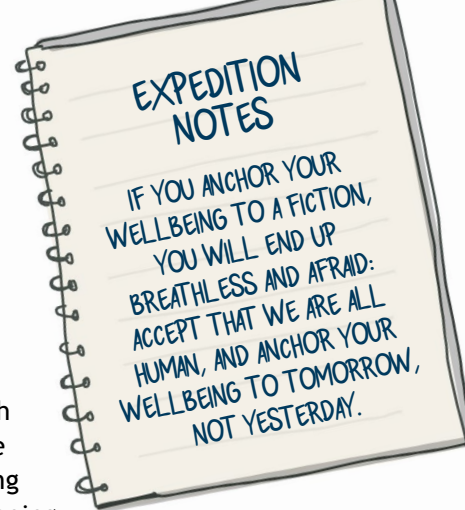 EXPEDITION
NOTES
IF YOU ANCHOR YOUR
WELLBEING TO A FICTION,
YOU WILL END UP
BREATHLESS AND AFRAID:
ACCEPT THAT WE ARE ALL
HUMAN, AND ANCHOR YOUR
WELLBEING TO TOMORROW,
NOT YESTERDAY.